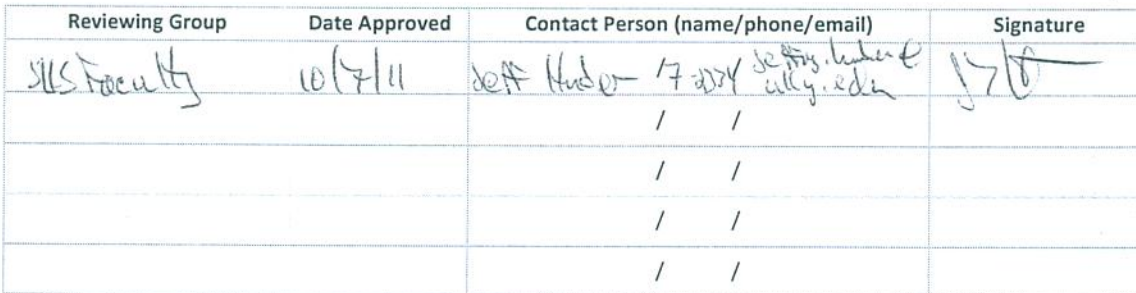 Reviewing Group Date Approved Contact Person (name/phone/email) Signature
SLIS Faculty 10/7/11 Jeff Huber / 7-2334
/ /
/ /
/ /
/ /